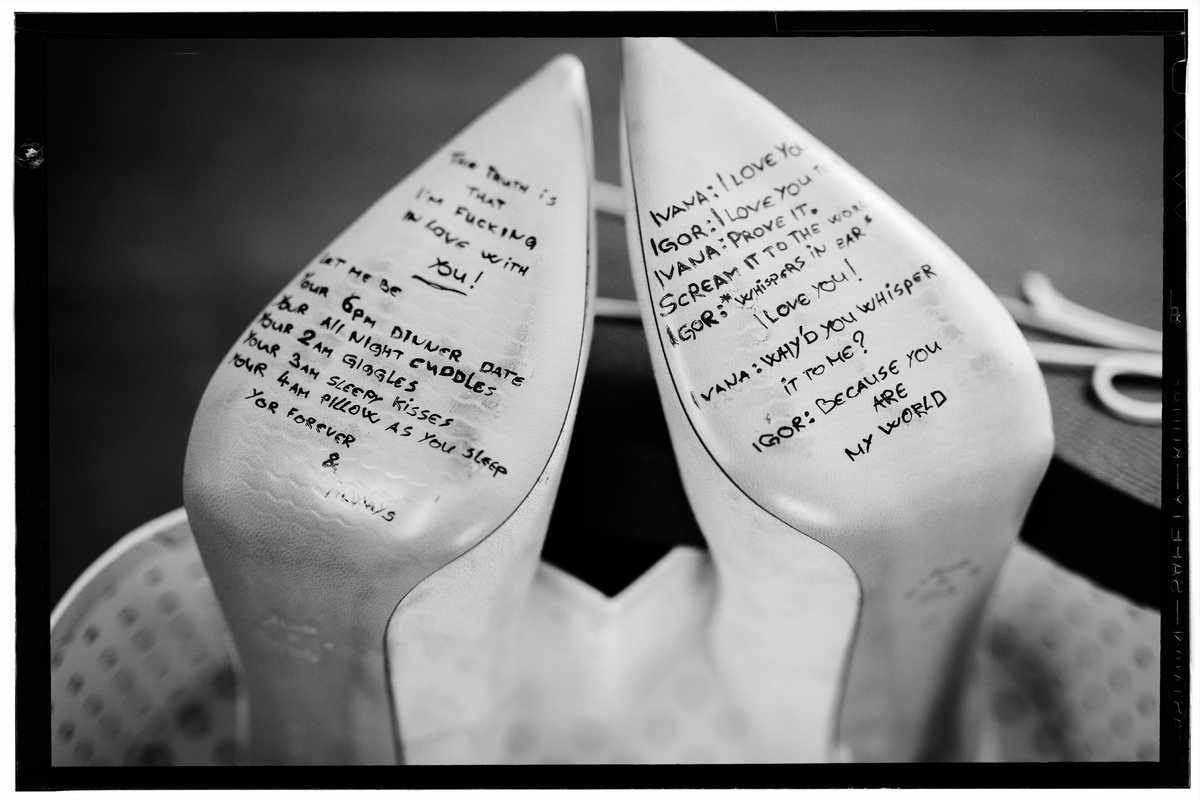 THE TRUTH iS
THAT
I'M FUCKING
IN LOVE WITH
YOU!
LET ME BE
YOUR 6PM DINNER DATE
YOUR ALL NIGHT CUDDLES
YOUR 2AM GIGGLES
YOUR 3AM SLEEPY KISSES
YOUR 4AM PILLOW AS YOU SLEEP
YOR FOREVER
&
IVANA: I LOVE YOU
IGOR: I LOVE YOU
IVANA: PROVE IT.
SCREAM IT TO THE
IGOR: *WHISPERS IN EAR*
I LOVE YOU!
IVANA: WHY'D YOU WHISPER
IT TO ME?
IGOR: BECAUSE YOU
ARE
MY WORLD